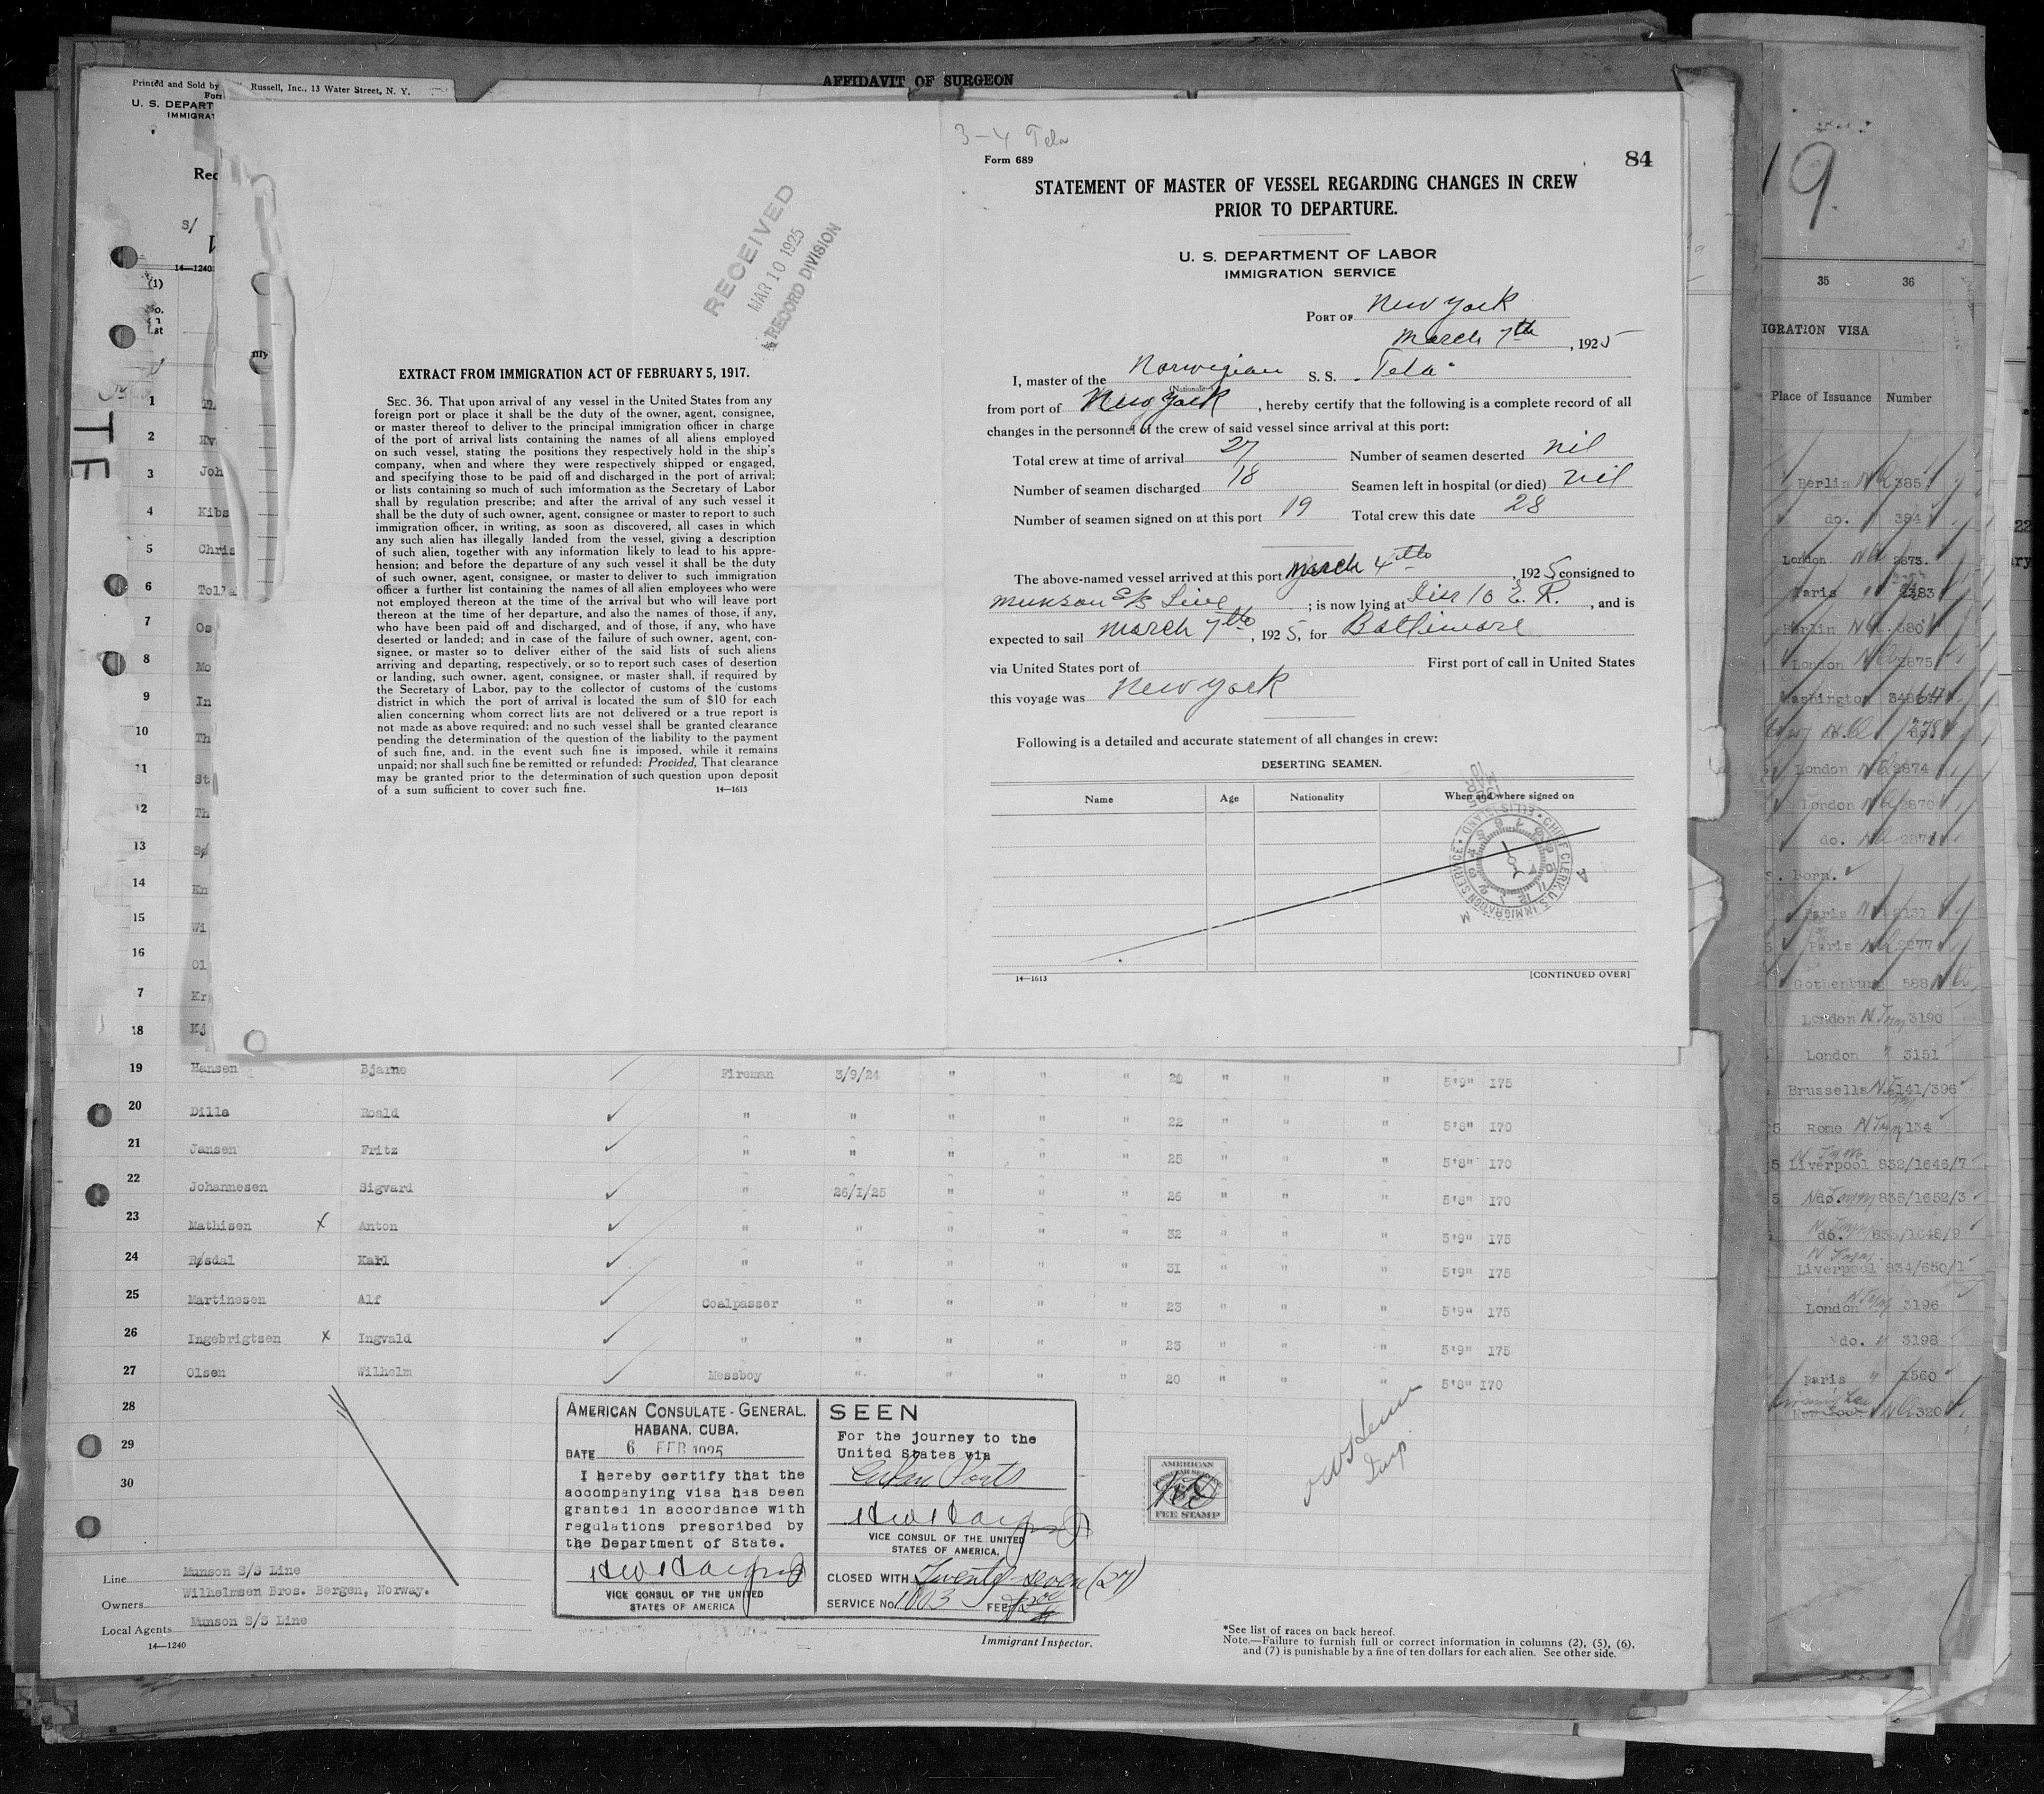 AFFIDAVIT OF SURGEON
Printed and Sold by Russell, Inc., 13 Water Street, N. Y.
U. S. DEPART
IMMIGRAT
Rec
S/
14—1240
(1)
No.
Lst
RECEIVED
MAR 10 1925
RECORD DIVISION
EXTRACT FROM IMMIGRATION ACT OF FEBRUARY 5, 1917.
SEC. 36. That upon arrival of any vessel in the United States from any
foreign port or place it shall be the duty of the owner, agent, consignee,
or master thereof to deliver to the principal immigration officer in charge
of the port of arrival lists containing the names of all aliens employed
on such vessel, stating the positions they respectively hold in the ship's
company, when and where they were respectively shipped or engaged,
and specifying those to be paid off and discharged in the port of arrival;
or lists containing so much of such imformation as the Secretary of Labor
shall by regulation prescribe; and after the arrival of any such vessel it
shall be the duty of such owner, agent, consignee or master to report to such
immigration officer, in writing, as soon as discovered, all cases in which
any such alien has illegally landed from the vessel, giving a description
of such alien, together with any information likely to lead to his appre-
hension; and before the departure of any such vessel it shall be the duty
of such owner, agent, consignee, or master to deliver to such immigration
officer a further list containing the names of all alien employees who were
not employed thereon at the time of the arrival but who will leave port
thereon at the time of her departure, and also the names of those, if any,
who have been paid off and discharged, and of those, if any, who have
deserted or landed; and in case of the failure of such owner, agent, con-
signee, or master so to deliver either of the said lists of such aliens
arriving and departing, respectively, or so to report such cases of desertion
or landing, such owner, agent, consignee, or master shall, if required by
the Secretary of Labor, pay to the collector of customs of the customs
district in which the port of arrival is located the sum of $10 for each
alien concerning whom correct lists are not delivered or a true report is
not made as above required; and no such vessel shall be granted clearance
pending the determination of the question of the liability to the payment
of such fine, and, in the event such fine is imposed, while it remains
unpaid; nor shall such fine be remitted or refunded: Provided, That clearance
may be granted prior to the determination of such question upon deposit
of a sum sufficient to cover such fine. 14—1613
3-4 Tela
Form 689
84
STATEMENT OF MASTER OF VESSEL REGARDING CHANGES IN CREW
PRIOR TO DEPARTURE.
U. S. DEPARTMENT OF LABOR
IMMIGRATION SERVICE
PORT OF New York
March 7th, 1925
I, master of the Norwegian S. S. "Tela"
(Nationality)
from port of New York, hereby certify that the following is a complete record of all
changes in the personnel of the crew of said vessel since arrival at this port:
Total crew at time of arrival 27 Number of seamen deserted nil
Number of seamen discharged 18 Seamen left in hospital (or died) nil
Number of seamen signed on at this port 19 Total crew this date 28
The above-named vessel arrived at this port March 4th, 1925 consigned to
Munson S/S Line; is now lying at Pier 10 E. R., and is
expected to sail March 7th, 1925, for Baltimore
via United States port of First port of call in United States
this voyage was New York
Following is a detailed and accurate statement of all changes in crew:
DESERTING SEAMEN.
Name Age Nationality When and where signed on
CHIEF CLERK, U.S. IMMIGRATION SERVICE • ELLIS ISLAND
14—1613 [CONTINUED OVER]
1 Th
2 Kv
3 Joh
4 Kibs
5 Chris
6 Tolla
7 Os
8 Mo
9 In
10 Th
11 St
12 Th
13 Sø
14 Kn
15 Wi
16 Ol
7 Kr
18 Kj
19 Hansen Bjarne Fireman 3/9/24 " " " 20 " " " 5'9" 175
20 Dille Roald " " " " " 22 " " " 5'8" 170
21 Jansen Fritz " " " " " 25 " " " 5'8" 170
22 Johannesen Sigvard " 26/1/25 " " " 26 " " " 5'8" 170
23 Mathisen x Anton " " " " " 32 " " " 5'9" 175
24 Røsdal Karl " " " " " 31 " " " 5'9" 175
25 Martinesen Alf Coalpasser " " " " 23 " " " 5'9" 175
26 Ingebrigtsen x Ingvald " " " " " 23 " " " 5'9" 175
27 Olsen Wilhelm Messboy " " " " 20 " " " 5'8" 170
28
29
30
AMERICAN CONSULATE-GENERAL.
HABANA, CUBA.
DATE 6 FEB 1925
I hereby certify that the
accompanying visa has been
granted in accordance with
regulations prescribed by
the Department of State.
VICE CONSUL OF THE UNITED
STATES OF AMERICA
SEEN
For the journey to the
United States via
Cuban Ports
VICE CONSUL OF THE UNITED
STATES OF AMERICA.
CLOSED WITH Twenty-seven (27)
SERVICE No. 1003 FEE
AMERICAN
CONSULAR SERVICE
FEE STAMP
Line Munson S/S Line
Owners Wilhelmsen Bros. Bergen, Norway.
Local Agents Munson S/S Line
14—1240
Immigrant Inspector.
*See list of races on back hereof.
Note.—Failure to furnish full or correct information in columns (2), (5), (6),
and (7) is punishable by a fine of ten dollars for each alien. See other side.
19.
35 36
IGRATION VISA
Place of Issuance Number
Berlin 385
do. 384
London 2873.
Paris
Berlin 380
London 2875
Washington
London 2874
London 2870
do. 2871
Born.
Paris
Paris 2277
Gothenburg 588
London 3190
London " 3151
Brussells 141/396
Rome 134
Liverpool 832/1646/7
do 835/1652/3
do. 833/1648/9
Liverpool 834/650/1
London 3196
do. " 3198
Paris " 1560
New York 320